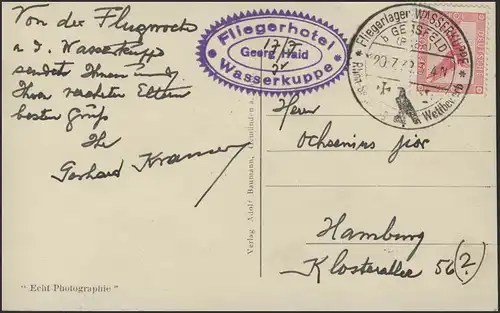 Von der Flugwoche
a. d. Wasserkuppe
sendet Ihnen und
Ihren verehrten Eltern
besten Gruß
Ihr
Gerhard Kramer
Fliegerhotel
Georg Haid
Wasserkuppe
Fliegerlager WASSERKUPPE
b. GERSFELD
(RHÖN)
Rhön
Wettbewerb
Herr
Ochsenius jior
Hamburg
Klosterallee 56 (2)
Verlag Adolf Baumann, Gemünden a.
"Echt Photographie"